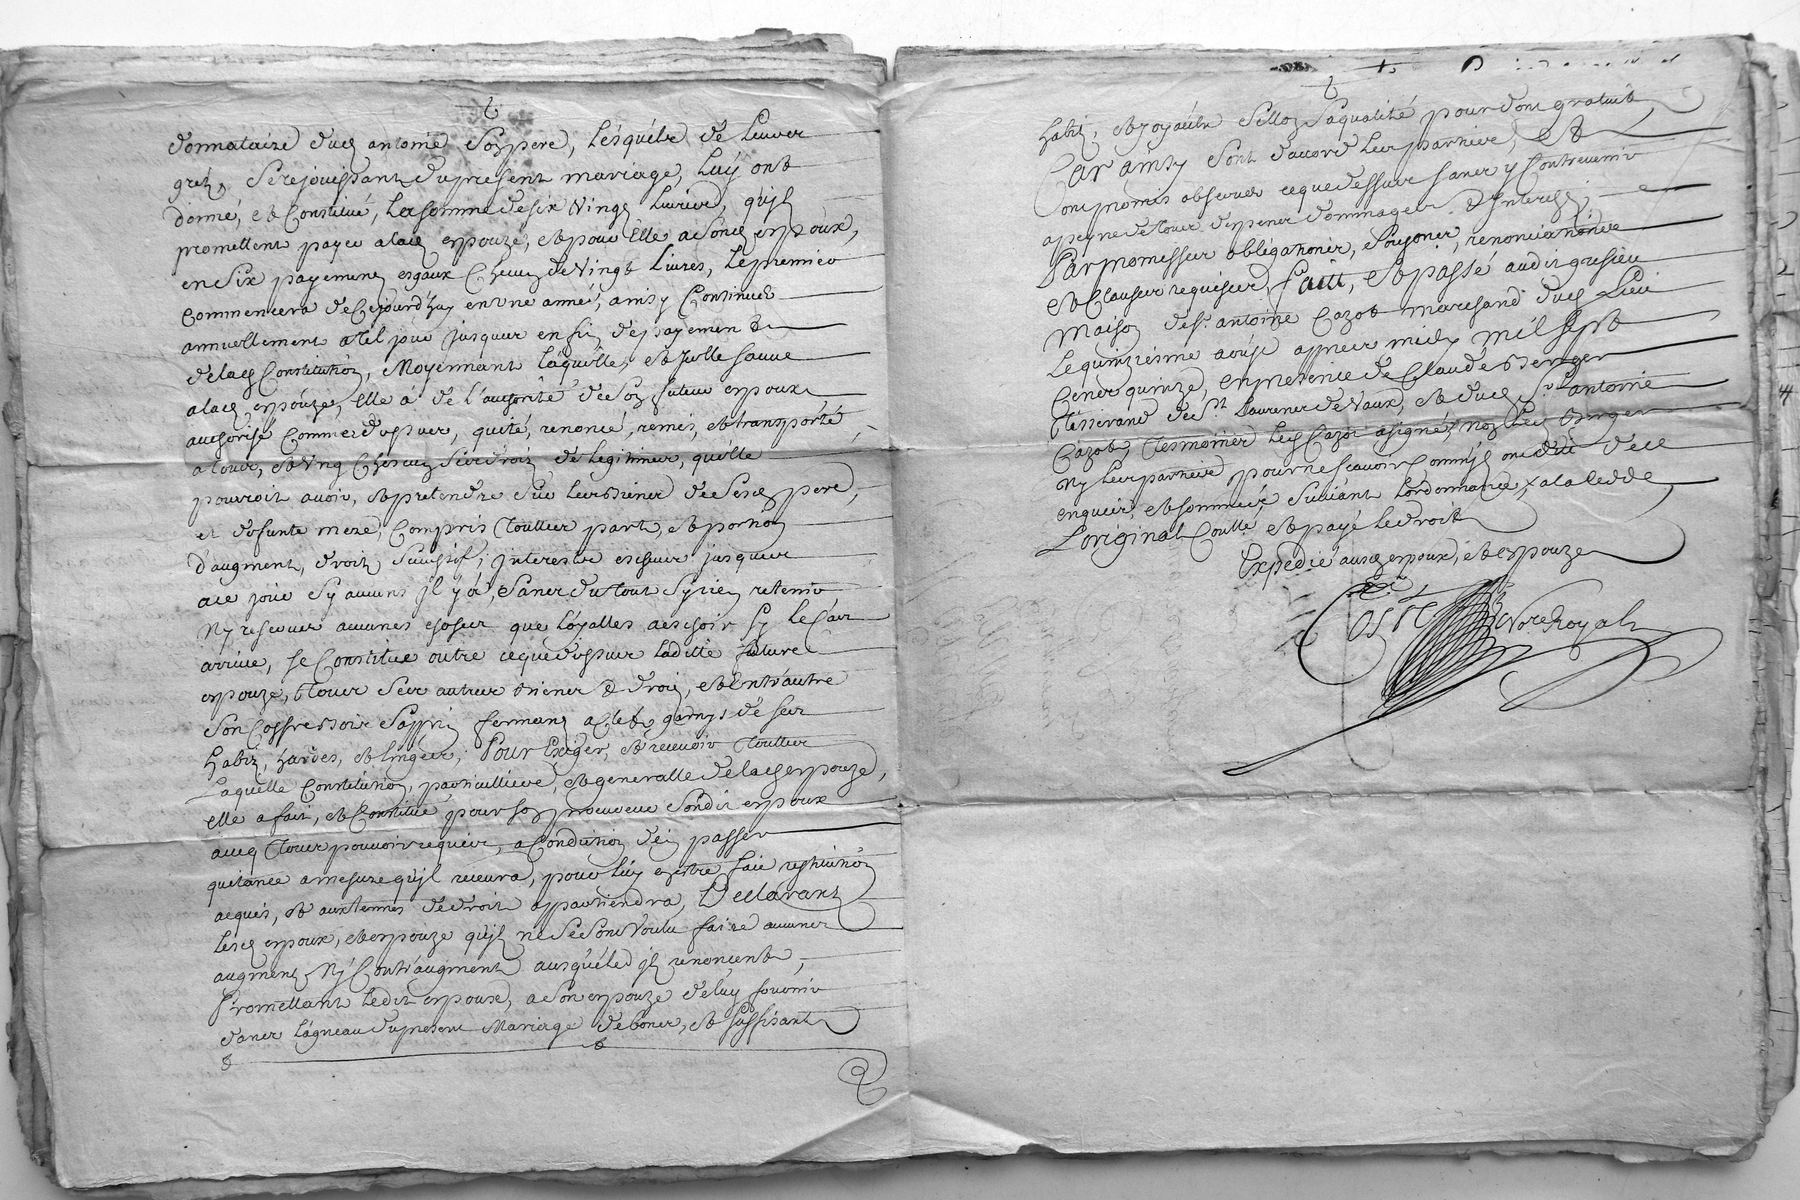 donnataire dud antoine Son pere, Lesquels de Leurs
grez, Se rejouissant du present mariage, Luy ont
donné, et Constitué, La somme de six Vingt Livres, qu'jls
promettent payer a lad espouze, et pour Elle a Sond espoux,
en Six payements esgaux Chacun de Vingt Livres, Le premier
Commencera de Cejourd'huy en Une année, ainsy Continuer
annuellement a tel jour jusques en fin de payement
de lad Constitution, Moyennant Laquelle, et Icelle sauve
a lad espouze, Elle a de L'authorité de Son futeur espoux
authorisé Comme dessus, quité, renoncé, remis, et transporté
a tous, et Ung Chacuns Ses droitz de Legitimes, qu'elle
pourroit avoir, et pretendre sur Les biens de Sesd pere,
et defunte mere, Compris Touttes part, et portion
d'augment, droit Successif, jnterestz escheus jusques
a ce jour Sy aucuns jl y a, Sans du tout Sy rien retenir
Ny reserver aucunes choses que Loyalles aeschoir Sy le Cas
arrive, se Constitue outre ce que dessus laditte future
espouze, Tous Ses autres biens & droitz, et Entr'autre
Son Coffre bois Sappin fermant a Clef garnys de ses
habitz, hardes, et linges, Pour Exiger, et recevoir Toutte
Laquelle Constitution, particulliere, et generalle de lad espouze,
elle a fait, et Constitué pour son procureur Sondit espoux
avec Tous pouvoirs requis, a Condition d'en passer
quitance a mesure qu'jl recevra, pour Luy en estre faite restitution
acquis, et aux termes de droit appartiendra, Declarantz
Lesd espoux, et espouze qu'jls ne Se Sont Voulu faire aucuns
augment, Ny Contr'augment ausquels jls renoncent,
Promettant Ledit espoux, a Son espouze de luy fournir
dans L'agneau du present Mariage de bones, et suffisants
habitz, et joyaux Sellon Sa qualité pour don gratuit
Car ainsy Sont d'accord Les parties, Et
Ont promis observer ce que dessus sans y Contrevenir
a peyne de tous despens dommages & Interestz,
Par promesses obligations, Soumons, renonciations
et Clauses requises, Faitt, et passé audit
Maison de Sr antoine Cazot marchand dud Lieu
Le quinzieme aoust apres midy mil Sept
Cens quinze, En presence de Claude Berger
Tisserand de St Laurens de Vaux, et dud Sr antoine
Cazot, Tesmoins Led Cazot a signé, non led Berger
Ny Les parties pour ne scavoir Comm'jls ont dit de ce
enquis, et sommés, Suivant Lordonnance, a la Cedde
L'original Coullé, et payé Le droit
Expedié ausd espoux, et espouze
Nore Royal